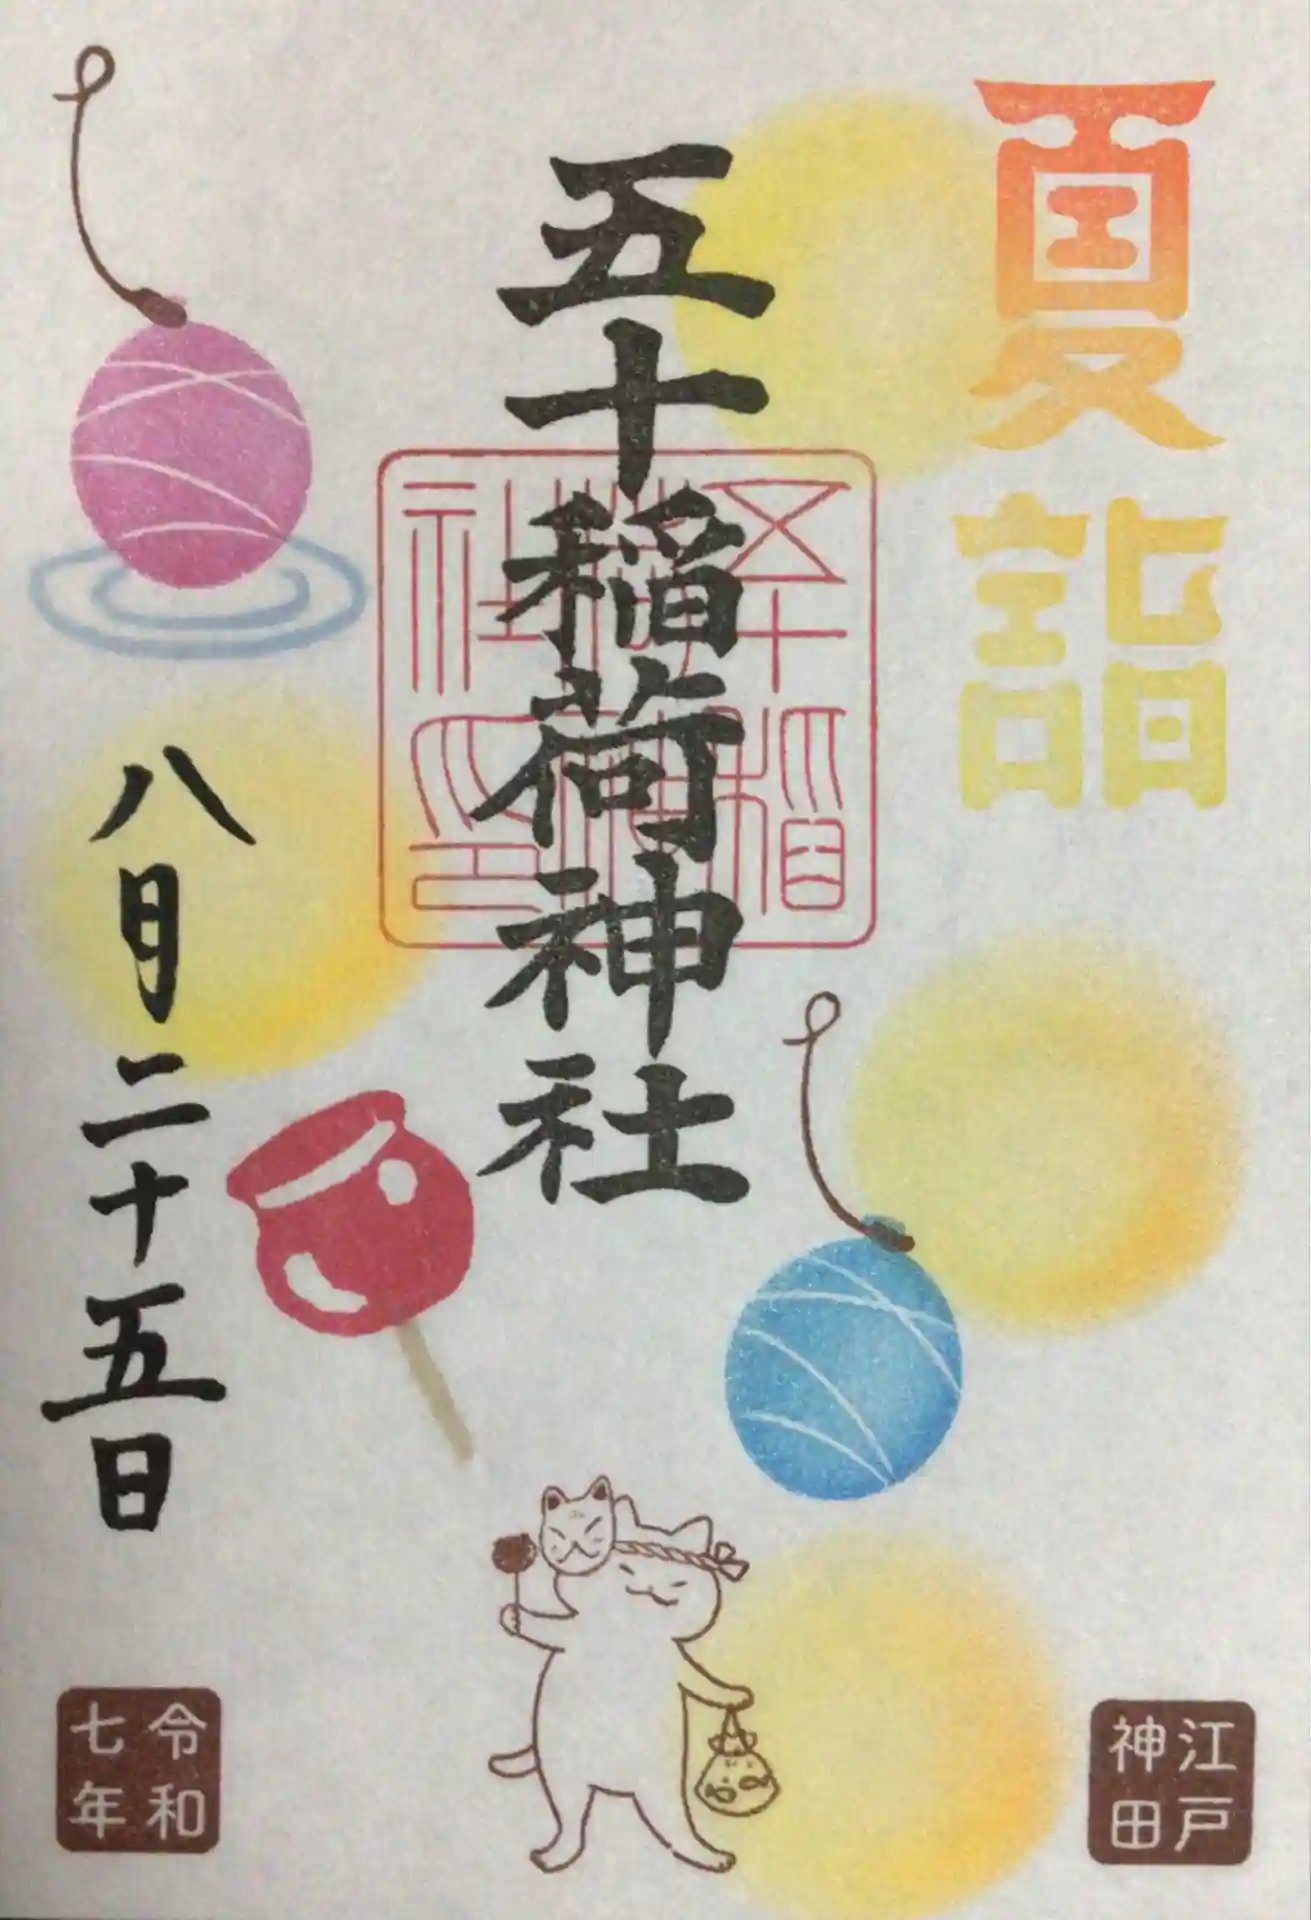 夏詣
五十稲荷神社
五十稲荷神社之印
八月二十五日
江戸神田
令和七年